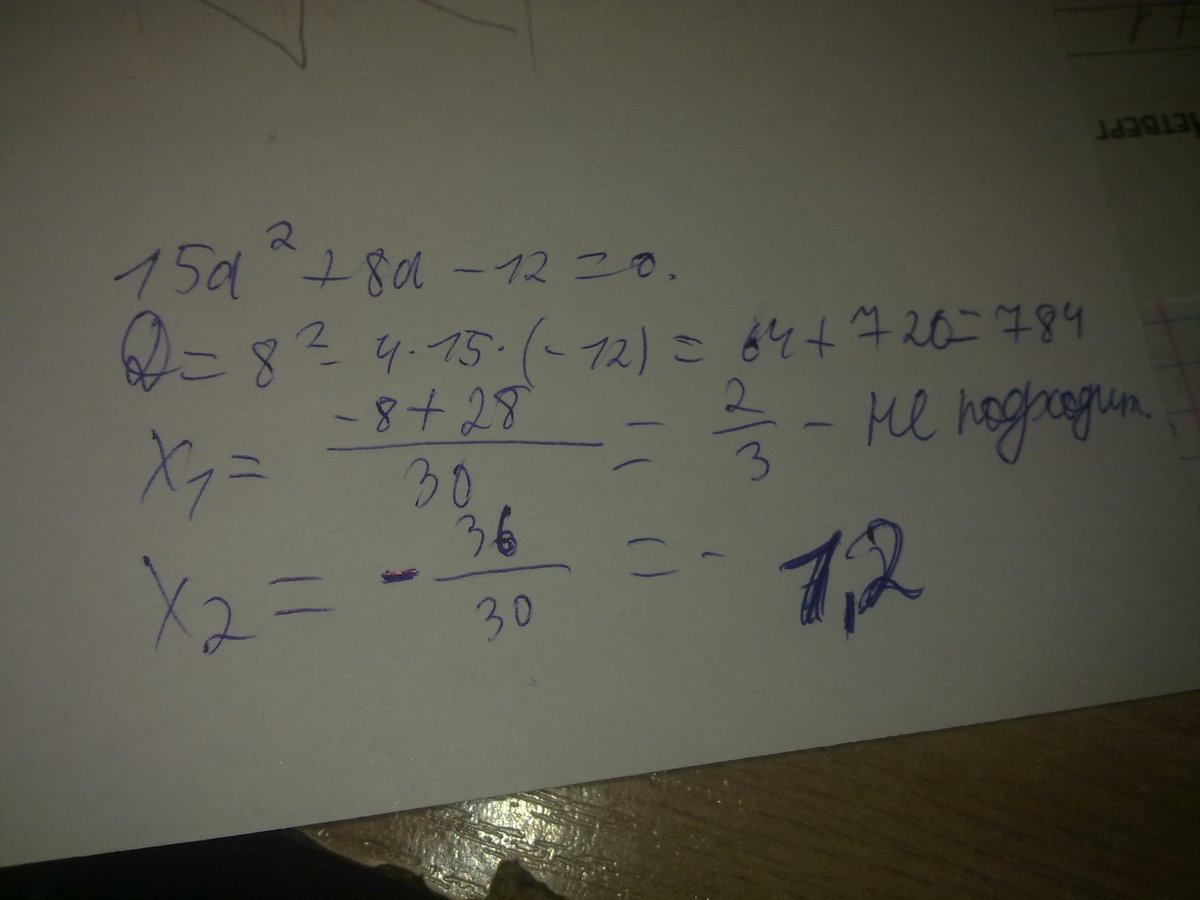 ЧЕТВЕРГ
15a² + 8a - 12 = 0.
D = 8² - 4·15·(-12) = 64 + 720 = 784
x₁ = (-8 + 28)/30 = 2/3 - не подходит.
x₂ = - 36/30 = - 1,2